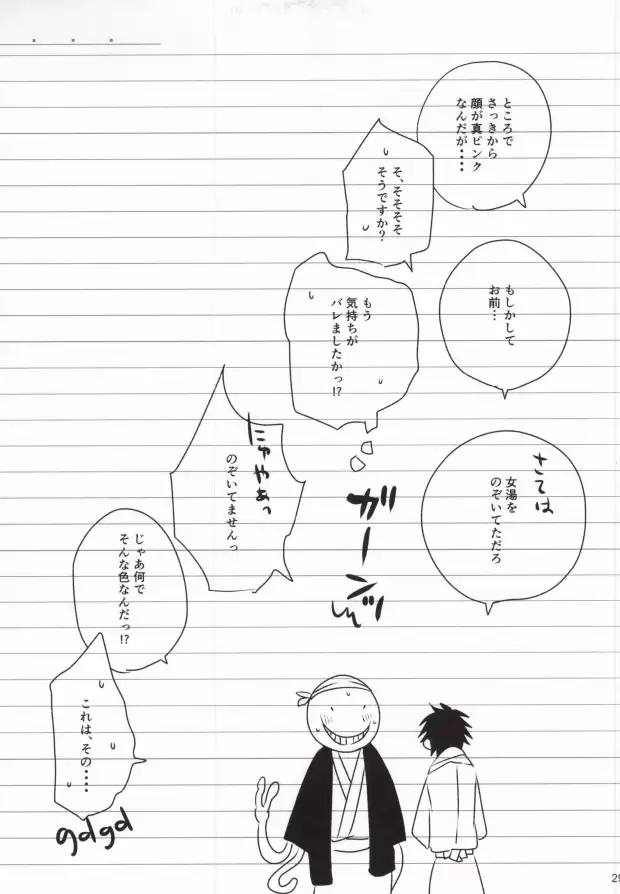 ところで
さっきから
顔が真ピンク
なんだが・・・・
そ、そそそそ
そうですか?
もしかして
お前…
もう
気持ちが
バレましたかっ!?
さては
女湯を
のぞいてただろ
ガーンッ
にゅやあっ
のぞいてませんっ
じゃあ何で
そんな色なんだっ!?
これは、その・・・・・
gdgd
29